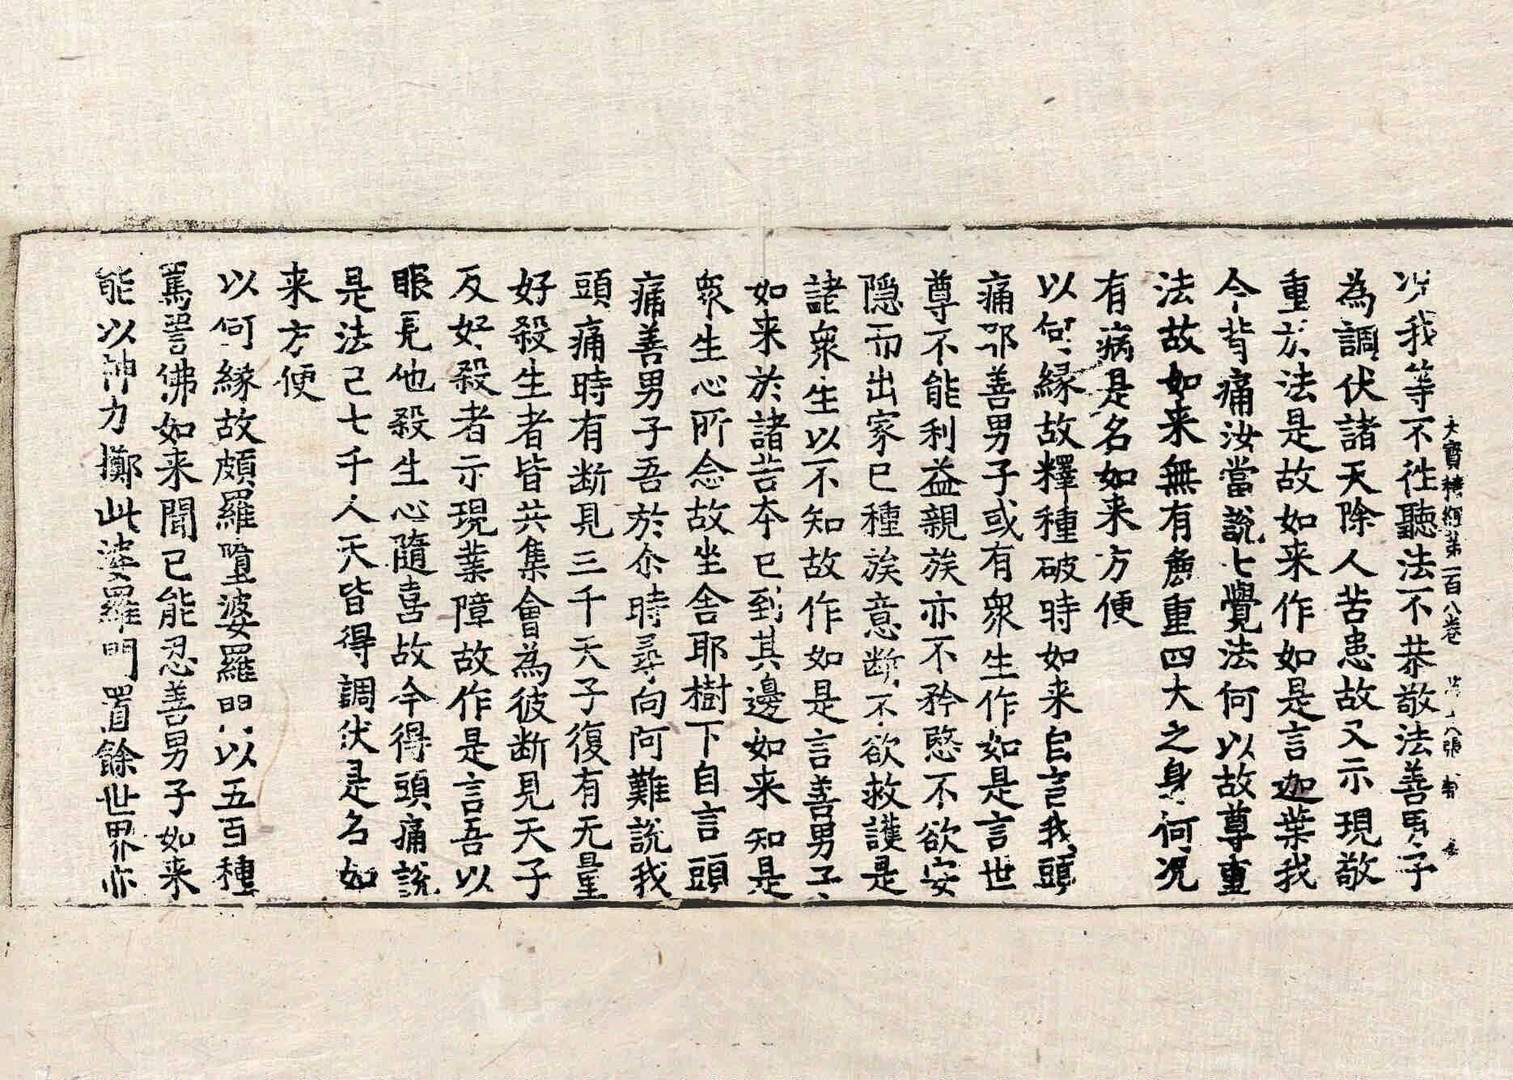 大寶積經第一百八卷
況我等不徃聽法不恭敬法善男子
為調伏諸天除人苦患故又示現敬
重於法是故如来作如是言迦葉我
今背痛汝當說七覺法何以故尊重
法故如来無有麁重四大之身何况
有病是名如来方便
以何縁故釋種破時如来自言我頭
痛耶善男子或有衆生作如是言世
尊不能利益親族亦不矜愍不欲安
隐而出家已種族意断不欲救護是
諸衆生以不知故作如是言善男子
如来於諸苦本已到其邊如来知是
衆生心所念故坐舍耶樹下自言頭
痛善男子吾於尒時尋向阿難說我
頭痛時有断見三千天子復有无量
好殺生者皆共集會為彼断見天子
及好殺者示現業障故作是言吾以
眼見他殺生心隨喜故今得頭痛說
是法已七千人天皆得調伏是名如
来方便
以何縁故頗羅墮婆羅門以五百種
罵詈佛如来聞已能忍善男子如来
能以神力擲此婆羅門置餘世界亦